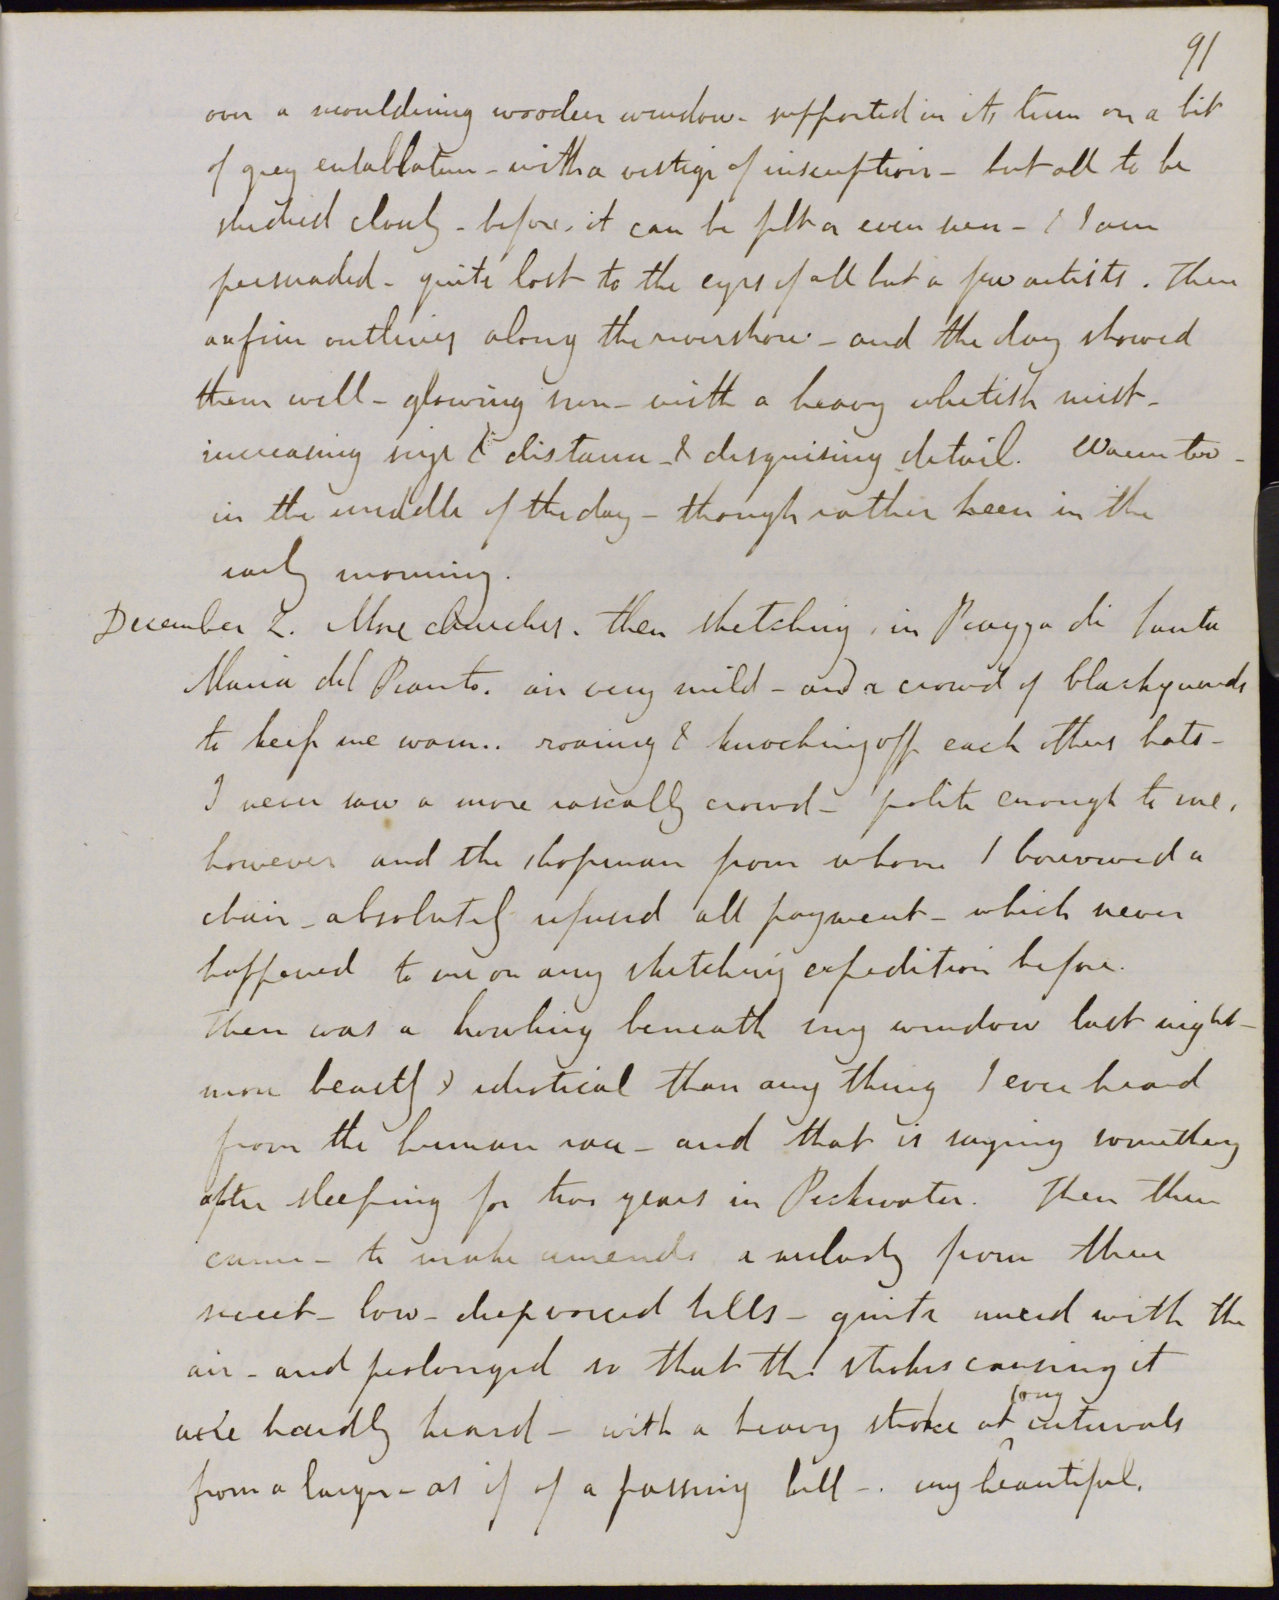 91
over a mouldering wooden window - supported in its turn on a bit
of grey entablature - with a vestige of inscription - but all to be
studied closely - before it can be felt or even seen - & I am
persuaded - quite lost to the eyes of all but a few artists. There
are fine outlines along the rivershore - and the day showed
them well - glowing sun - with a heavy whitish mist -
increasing size & distance - & disguising detail. Warm too -
in the middle of the day - though rather keen in the
early morning.
December 2. More churches. then sketching in Piazza di Santa
Maria del Pianto. air very mild - and a crowd of blackguards
to keep me warm.. roaring & knocking off each others hats -
I never saw a more rascally crowd - polite enough to me,
however and the shopman from whom I borrowed a
chair - absolutely refused all payment - which never
happened to me on any sketching expedition before.
There was a howling beneath my window last night -
more beastly & idiotical than any thing I ever heard
from the human race - and that is saying something
after sleeping for two years in Peckwater. Then there
came - to make amends a melody from these
sweet - low - deepvoiced bells - quite mixed with the
air - and prolonged so that the strokes causing it
were hardly heard - with a heavy stroke at long intervals
from a larger - as if of a passing bell -. very beautiful.